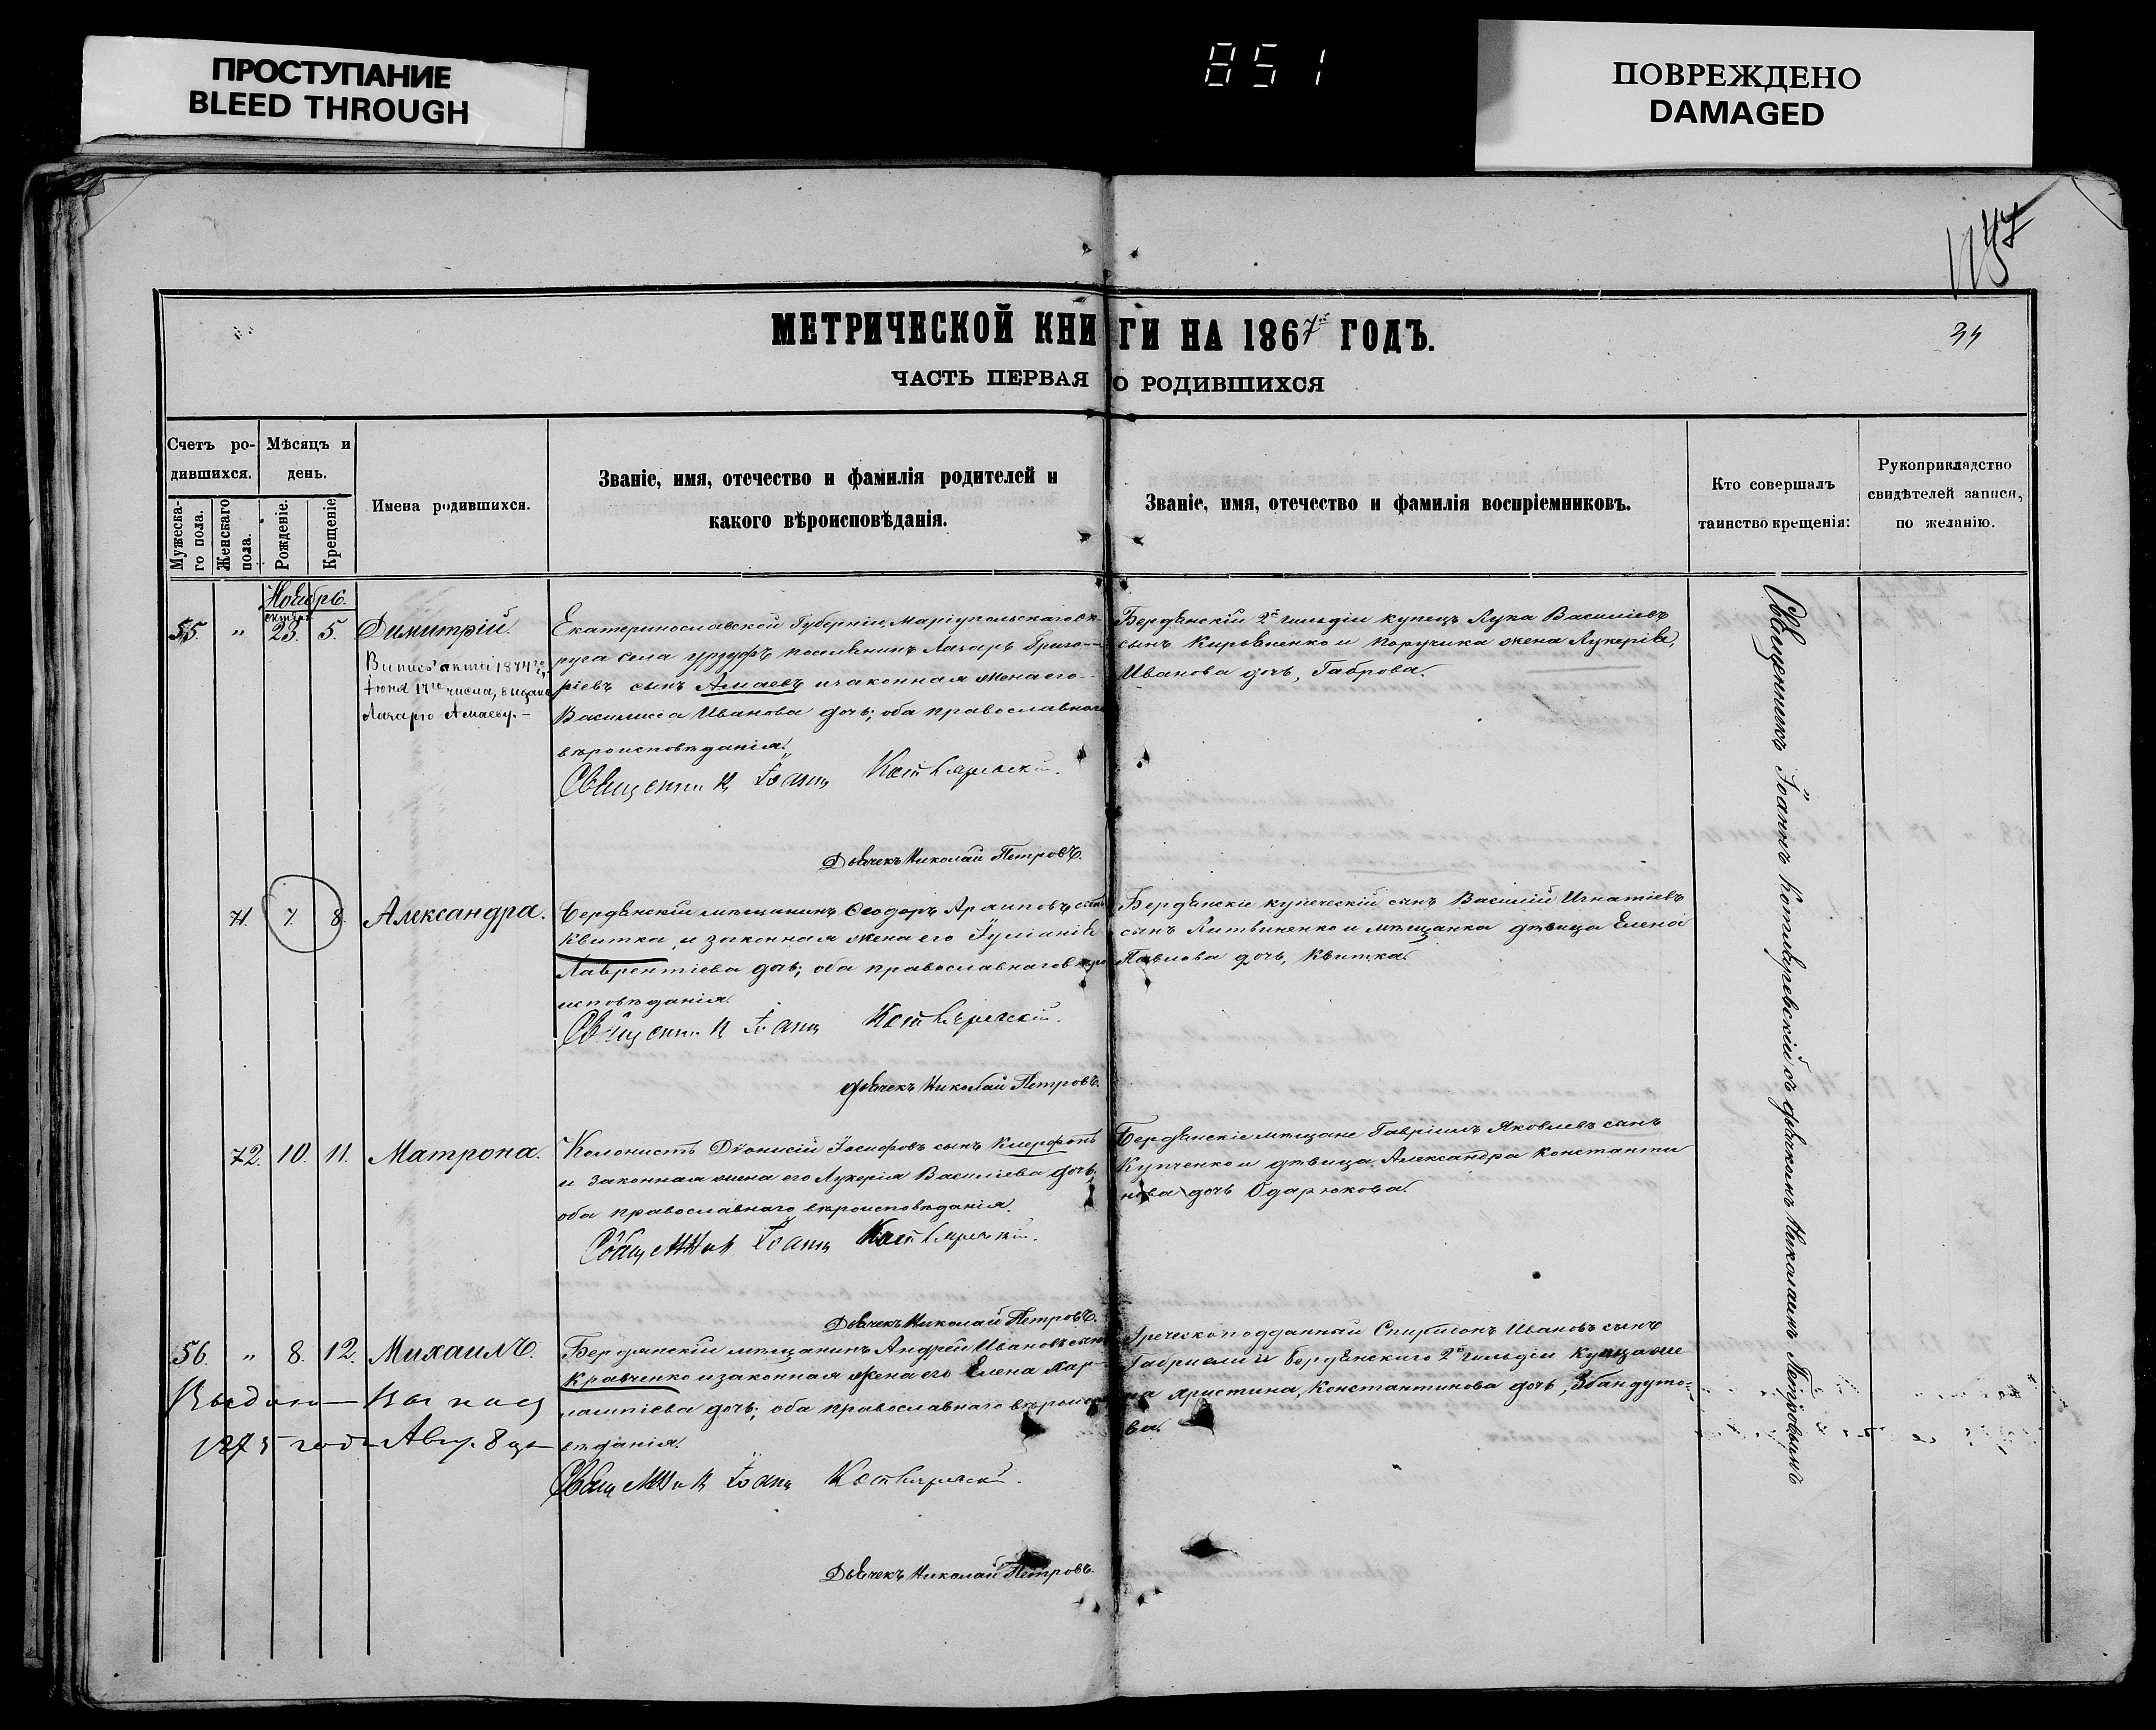 ПРОСТУПАНИЕ
BLEED THROUGH
851
ПОВРЕЖДЕНО
DAMAGED
МЕТРИЧЕСКОЙ КНИГИ НА 1867й ГОДЪ.
34
ЧАСТЬ ПЕРВАЯ О РОДИВШИХСЯ
Счетъ ро-
дившихся.
Мѣсяцъ и
день.
Мужеска-
го пола.
Женскаго
пола.
Рожденіе.
Крещеніе
Имена родившихся.
Званіе, имя, отечество и фамилія родителей и
какого вѣроисповѣданія.
Званіе, имя, отечество и фамилія воспріемниковъ.
Кто совершалъ
таинство крещенія:
Рукоприкладство
свидѣтелей записи,
по желанію.
Ноябрь.
октября
55. " 23. 5. Димитрій.
1874го
Іюня 17го числа, выдана
Лазарю Амаеву.-
Екатеринославской Губерніи Маріупольскаго ок-
руга села Урзуфъ поселянинъ Лазарь Григо-
ріевъ сынъ Амаевъ и законная жена его
Василисса Иванова дочь; оба православнаго
вѣроисповѣданія.
Священникъ Іоаннъ Котляревскій.
Дьячекъ Николай Петровъ.
Бердянскій 2й гильдіи купецъ Лука Василіевъ
сынъ Кирьяненко и поручика жена Лукерія
Иванова дочь, Габрова.
71. 7. 8. Александра.
Бердянскій мѣщанинъ Ѳеодоръ Архиповъ сынъ
Квитка, и законная жена его Іуліанія
Лаврентіева дочь; оба православнаго вѣро
исповѣданія.
Священникъ Іоаннъ Котляревскій.
Дьячекъ Николай Петровъ.
Бердянскій купеческій сынъ Василій Игнатіевъ
сынъ Литвиненко и мѣщанка дѣвица Елена
Павлова дочь, Квитка.
72. 10. 11. Матрона.
Колонистъ Діонисій Іосифовъ сынъ
и законная жена его Лукерія Василіева дочь,
оба православнаго вѣроисповѣданія.
Священникъ Іоаннъ Котляревскій.
Дьячекъ Николай Петровъ.
Бердянскіе мѣщане Гавріилъ Яковлевъ сынъ
Купченко и дѣвица Александра Константи
нова дочь Одарюкова.
56. " 8. 12. Михаилъ.
1875 года Авг. 8
Бердянскій мѣщанинъ Андрей Ивановъ сынъ
Кравченко и законная жена его Елена Хар-
лампіева дочь; оба православнаго вѣроиспо
вѣданія.
Священникъ Іоаннъ Котляревскій.
Дьячекъ Николай Петровъ.
Греческоподданный Спиридонъ Ивановъ сынъ
Габриели и бердянскаго 2й гильдіи купца же
на Христина, Константинова дочь,
ва.
Священникъ Іоаннъ Котляревскій съ дьячкомъ Николаемъ Петровымъ